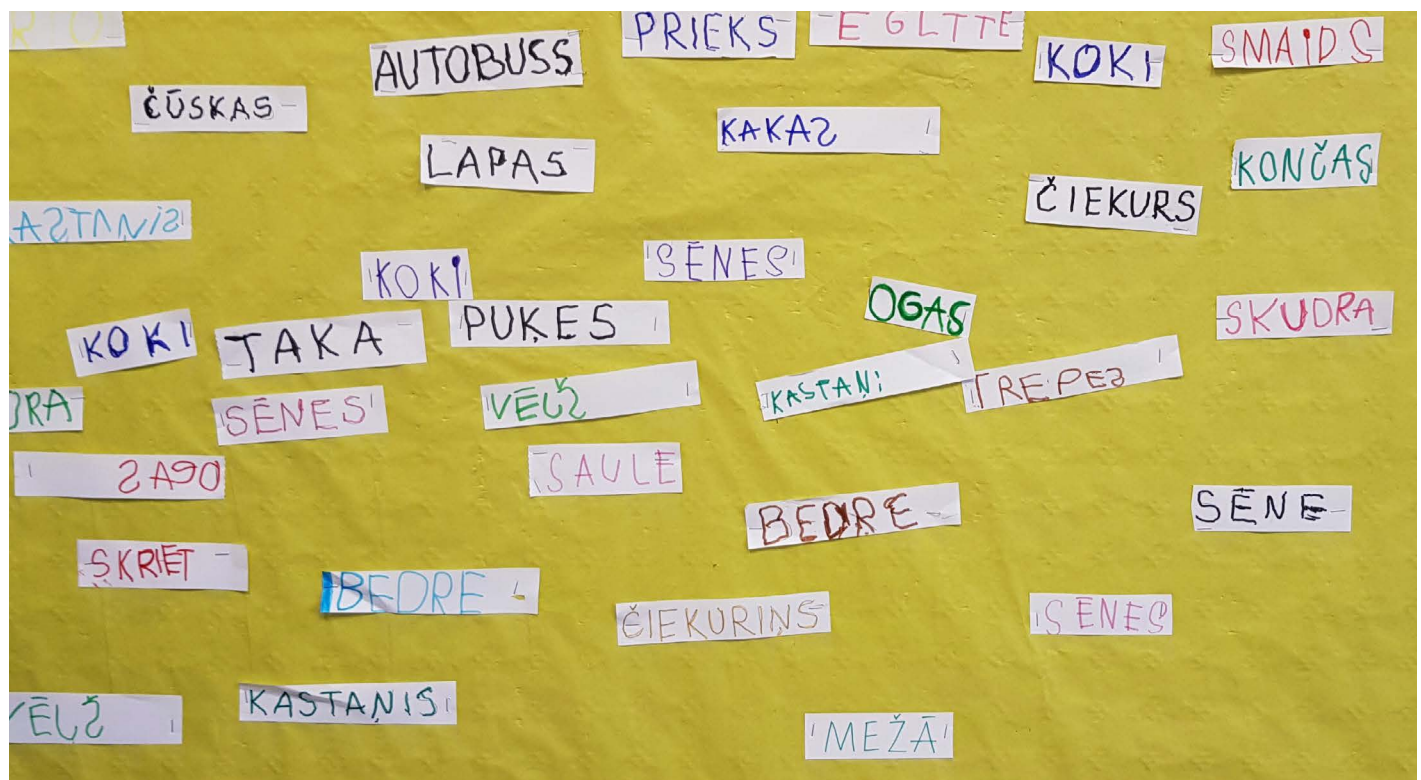 PRIEKS
EGLTTE
AUTOBUSS
KOKI
SMAIDS
ČŪSKAS
KAKAS
LAPAS
KONČAS
ČIEKURS
ASTANIS
KOKI
SĒNES
OGAS
SKUDRA
KOKI
TAKA
PUĶES
KASTAŅI
TREPES
DRA
SĒNES
VĒĻŠ
OGAS
SAULE
BEDRE
SĒNE
SKRIET
BEDRE
ČIEKURIŅS
SĒNES
VĒĻŠ
KASTAŅIS
MEŽĀ